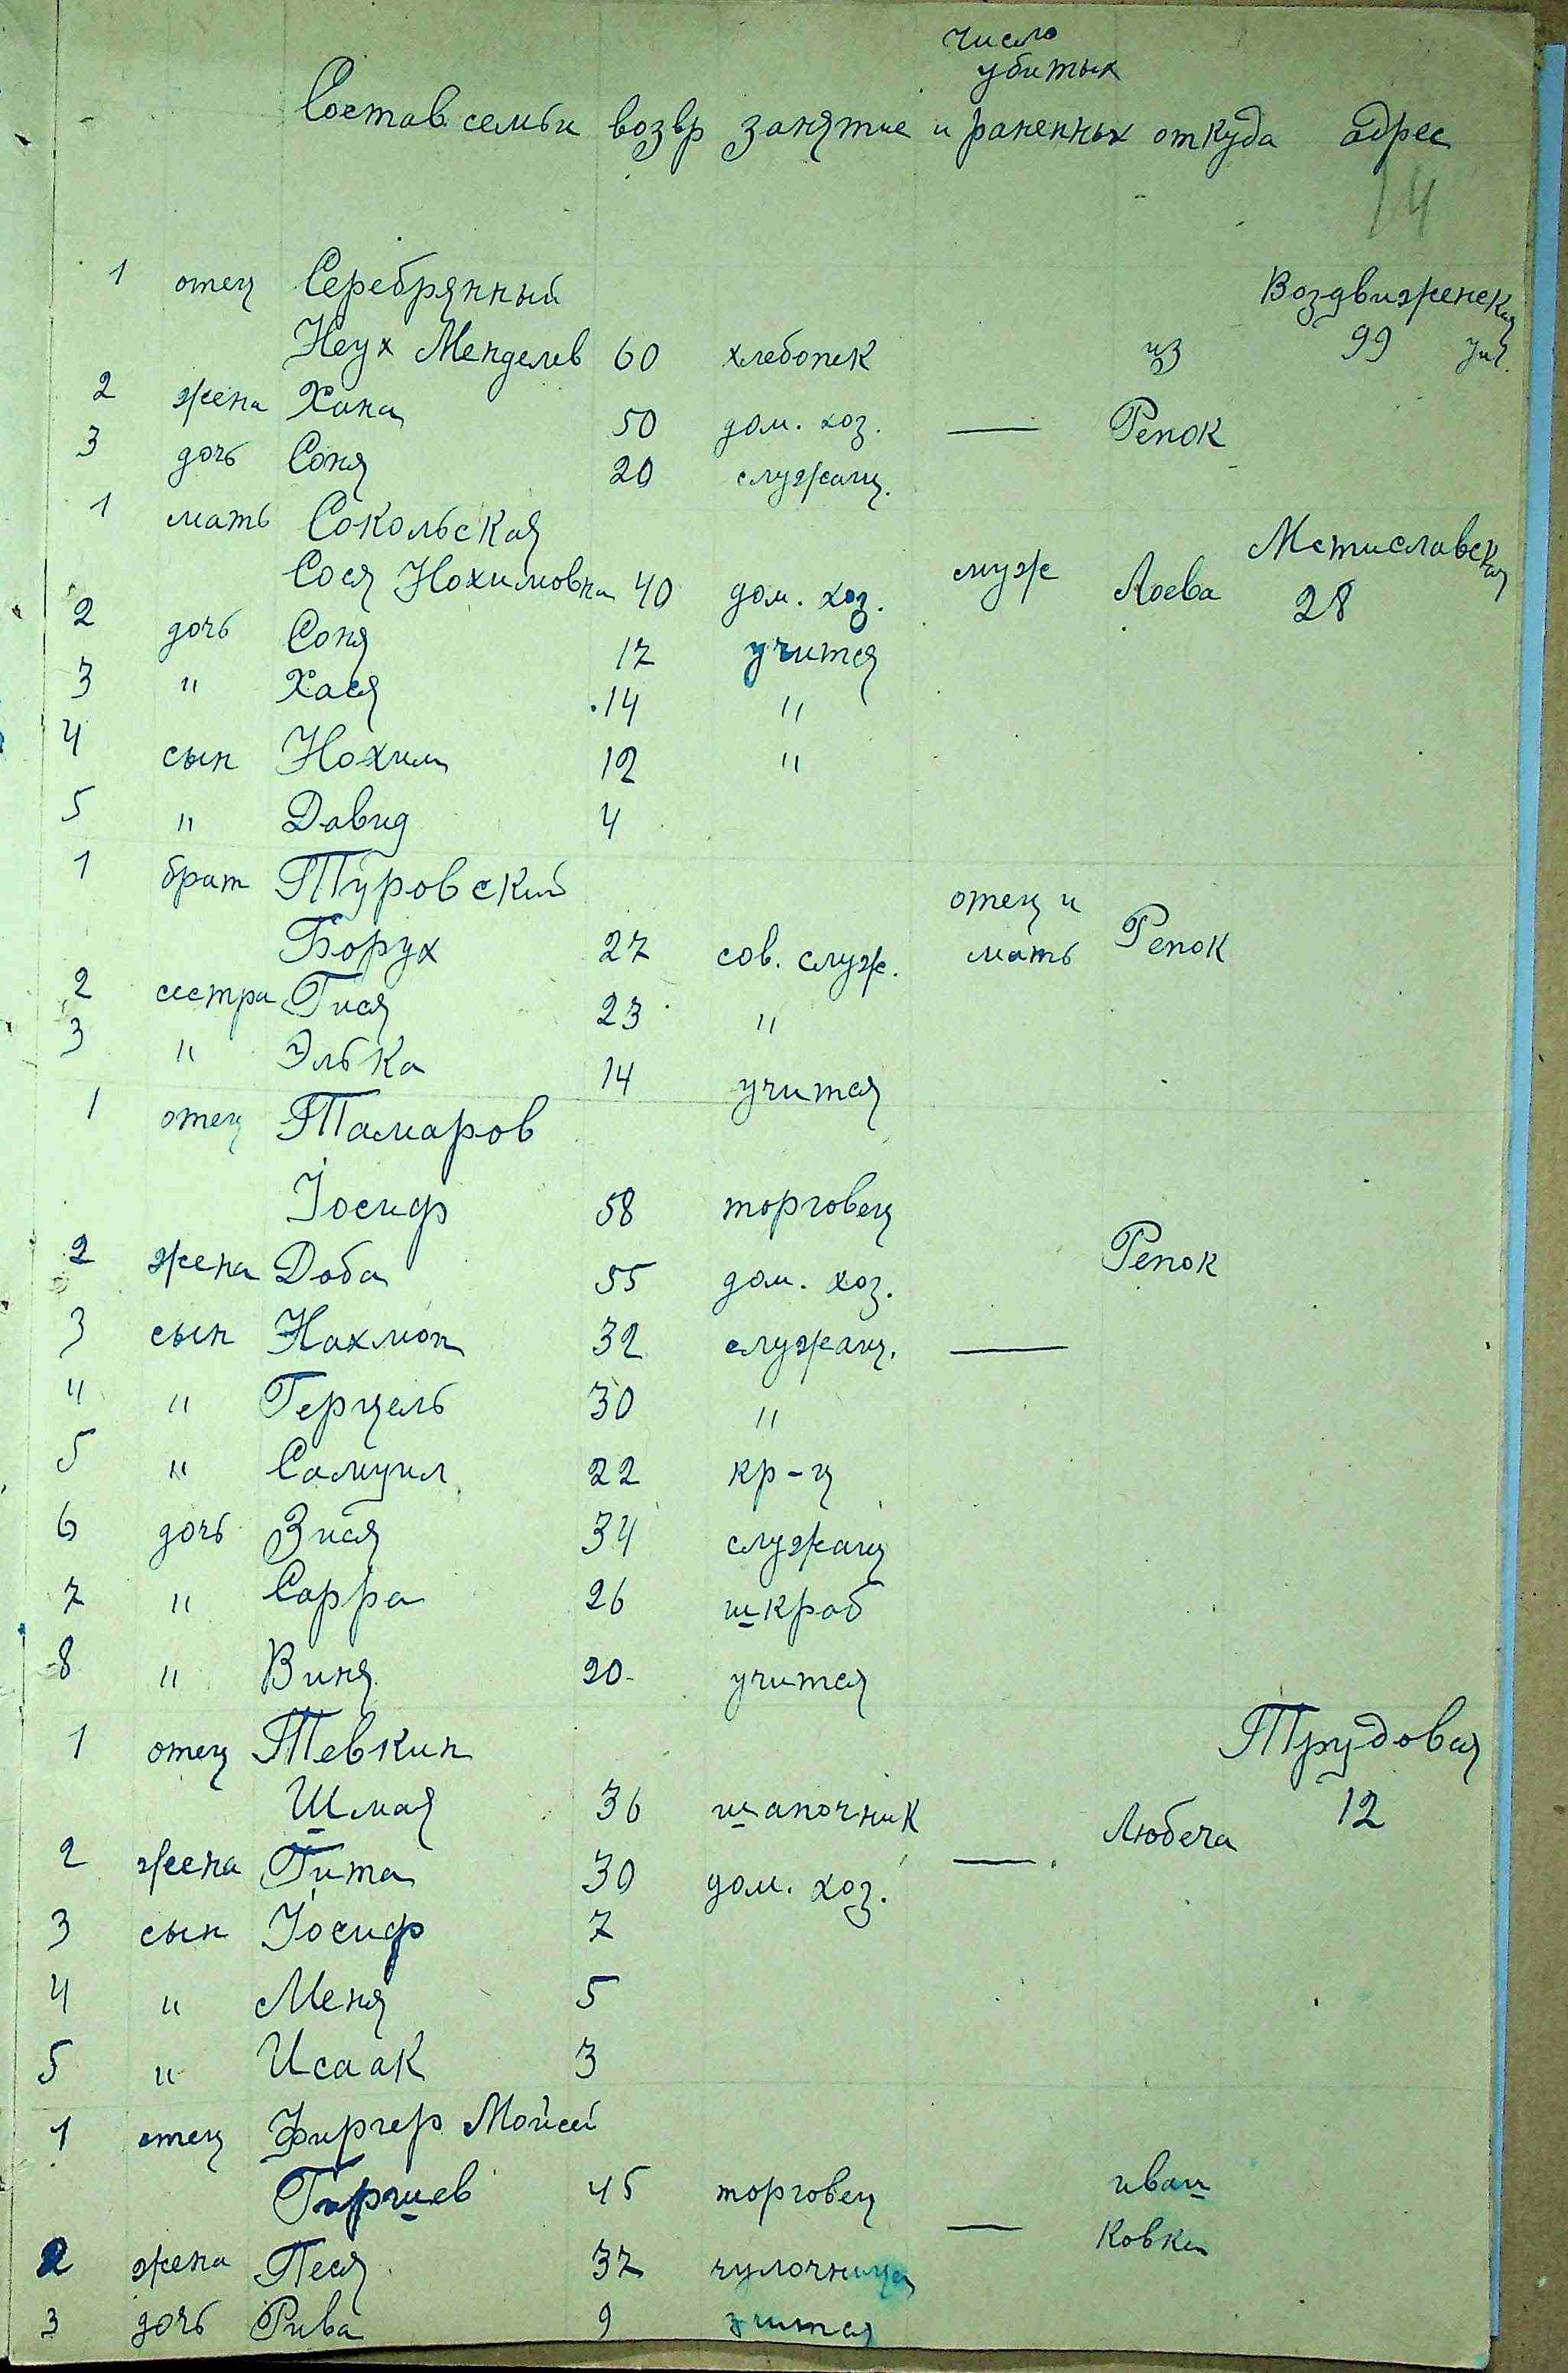 число
убитых
Состав семьи возвр занятие и раненных откуда адрес
14
1 отец Серебрянный Воздвиженская
Неух Менделев 60 хлебопек из 99 уч.
2 жена Хана 50 дом. хоз. — Репок
3 дочь Соня 20 служащ.
1 мать Сокольская Мстиславская
Сося Нохимовна 40 дом. хоз. муж Лоева 28
2 дочь Соня 17 учится
3 " Хася 14 "
4 сын Нохим 12 "
5 " Давид 4
1 брат Туровский отец и
Борух 27 сов. служ. мать Репок
2 сестра Гися 23 "
3 " Элька 14 учится
1 отец Тамаров
Іосиф 58 торговец
2 жена Доба 55 дом. хоз. Репок
3 сын Нахмон 32 служащ. —
4 " Герцель 30 "
5 " Самуил 22 кр-ц
6 дочь Зися 34 служащ
7 " Сарра 26 шкраб
8 " Виня 20 учится
1 отец Тевкин Трудовая
Шмая 36 шапочник Любеча 12
2 жена Гита 30 дом. хоз. —
3 сын Іосиф 7
4 " Меня 5
5 " Исаак 3
1 отец Фиргер Мойсей
Гиршев 45 торговец — иваш
2 жена Песя 37 чулочница ковки
3 дочь Рива 9 учится